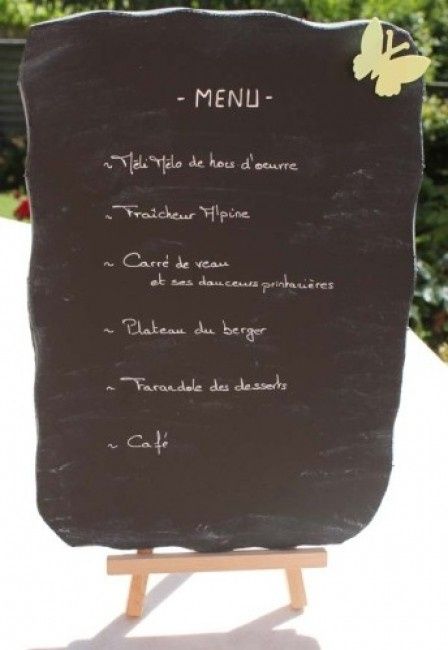 - MENU -
~ Méli Mélo de hors d'oeuvre
~ Fraîcheur Alpine
~ Carré de veau
et ses douceurs printanières
~ Plateau du berger
~ Farandole des desserts
~ Café